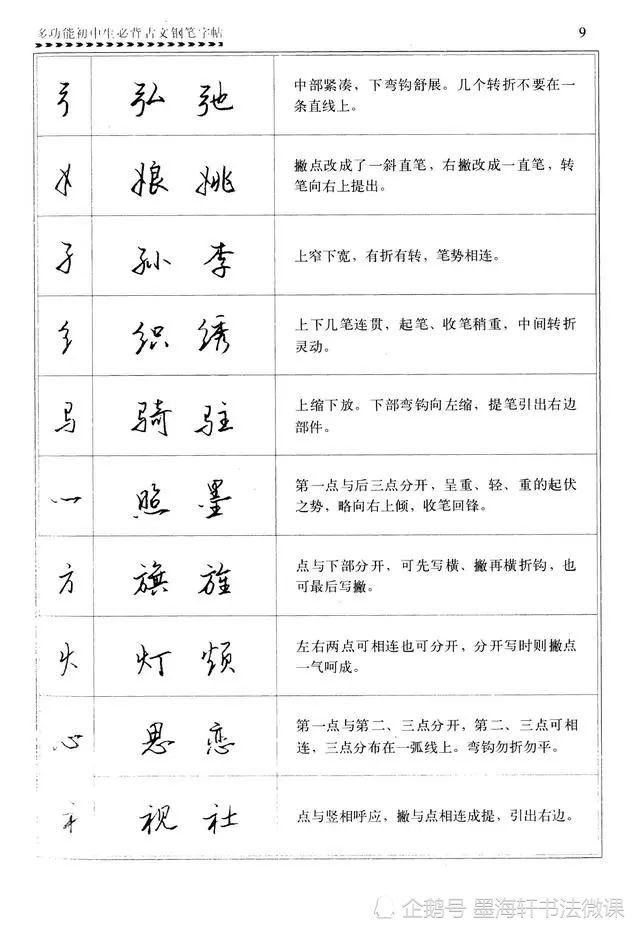 多功能初中生必背古文钢笔字帖
9
弓 弘 弛
中部紧凑，下弯钩舒展。几个转折不要在一
条直线上。
女 娘 姚
撇点改成了一斜直笔，右撇改成一直笔，转
笔向右上提出。
子 孙 李
上窄下宽，有折有转，笔势相连。
纟 织 绣
上下几笔连贯，起笔、收笔稍重，中间转折
灵动。
马 骑 驻
上缩下放。下部弯钩向左缩，提笔引出右边
部件。
灬 照 墨
第一点与后三点分开，呈重、轻、重的起伏
之势，略向右上倾，收笔回锋。
方 旗 旌
点与下部分开，可先写横、撇再横折钩，也
可最后写撇。
火 灯 烦
左右两点可相连也可分开，分开写时则撇点
一气呵成。
心 思 恋
第一点与第二、三点分开，第二、三点可相
连，三点分布在一弧线上。弯钩勿折勿平。
礻 视 社
点与竖相呼应，撇与点相连成提，引出右边。
企鹅号 墨海轩书法微课